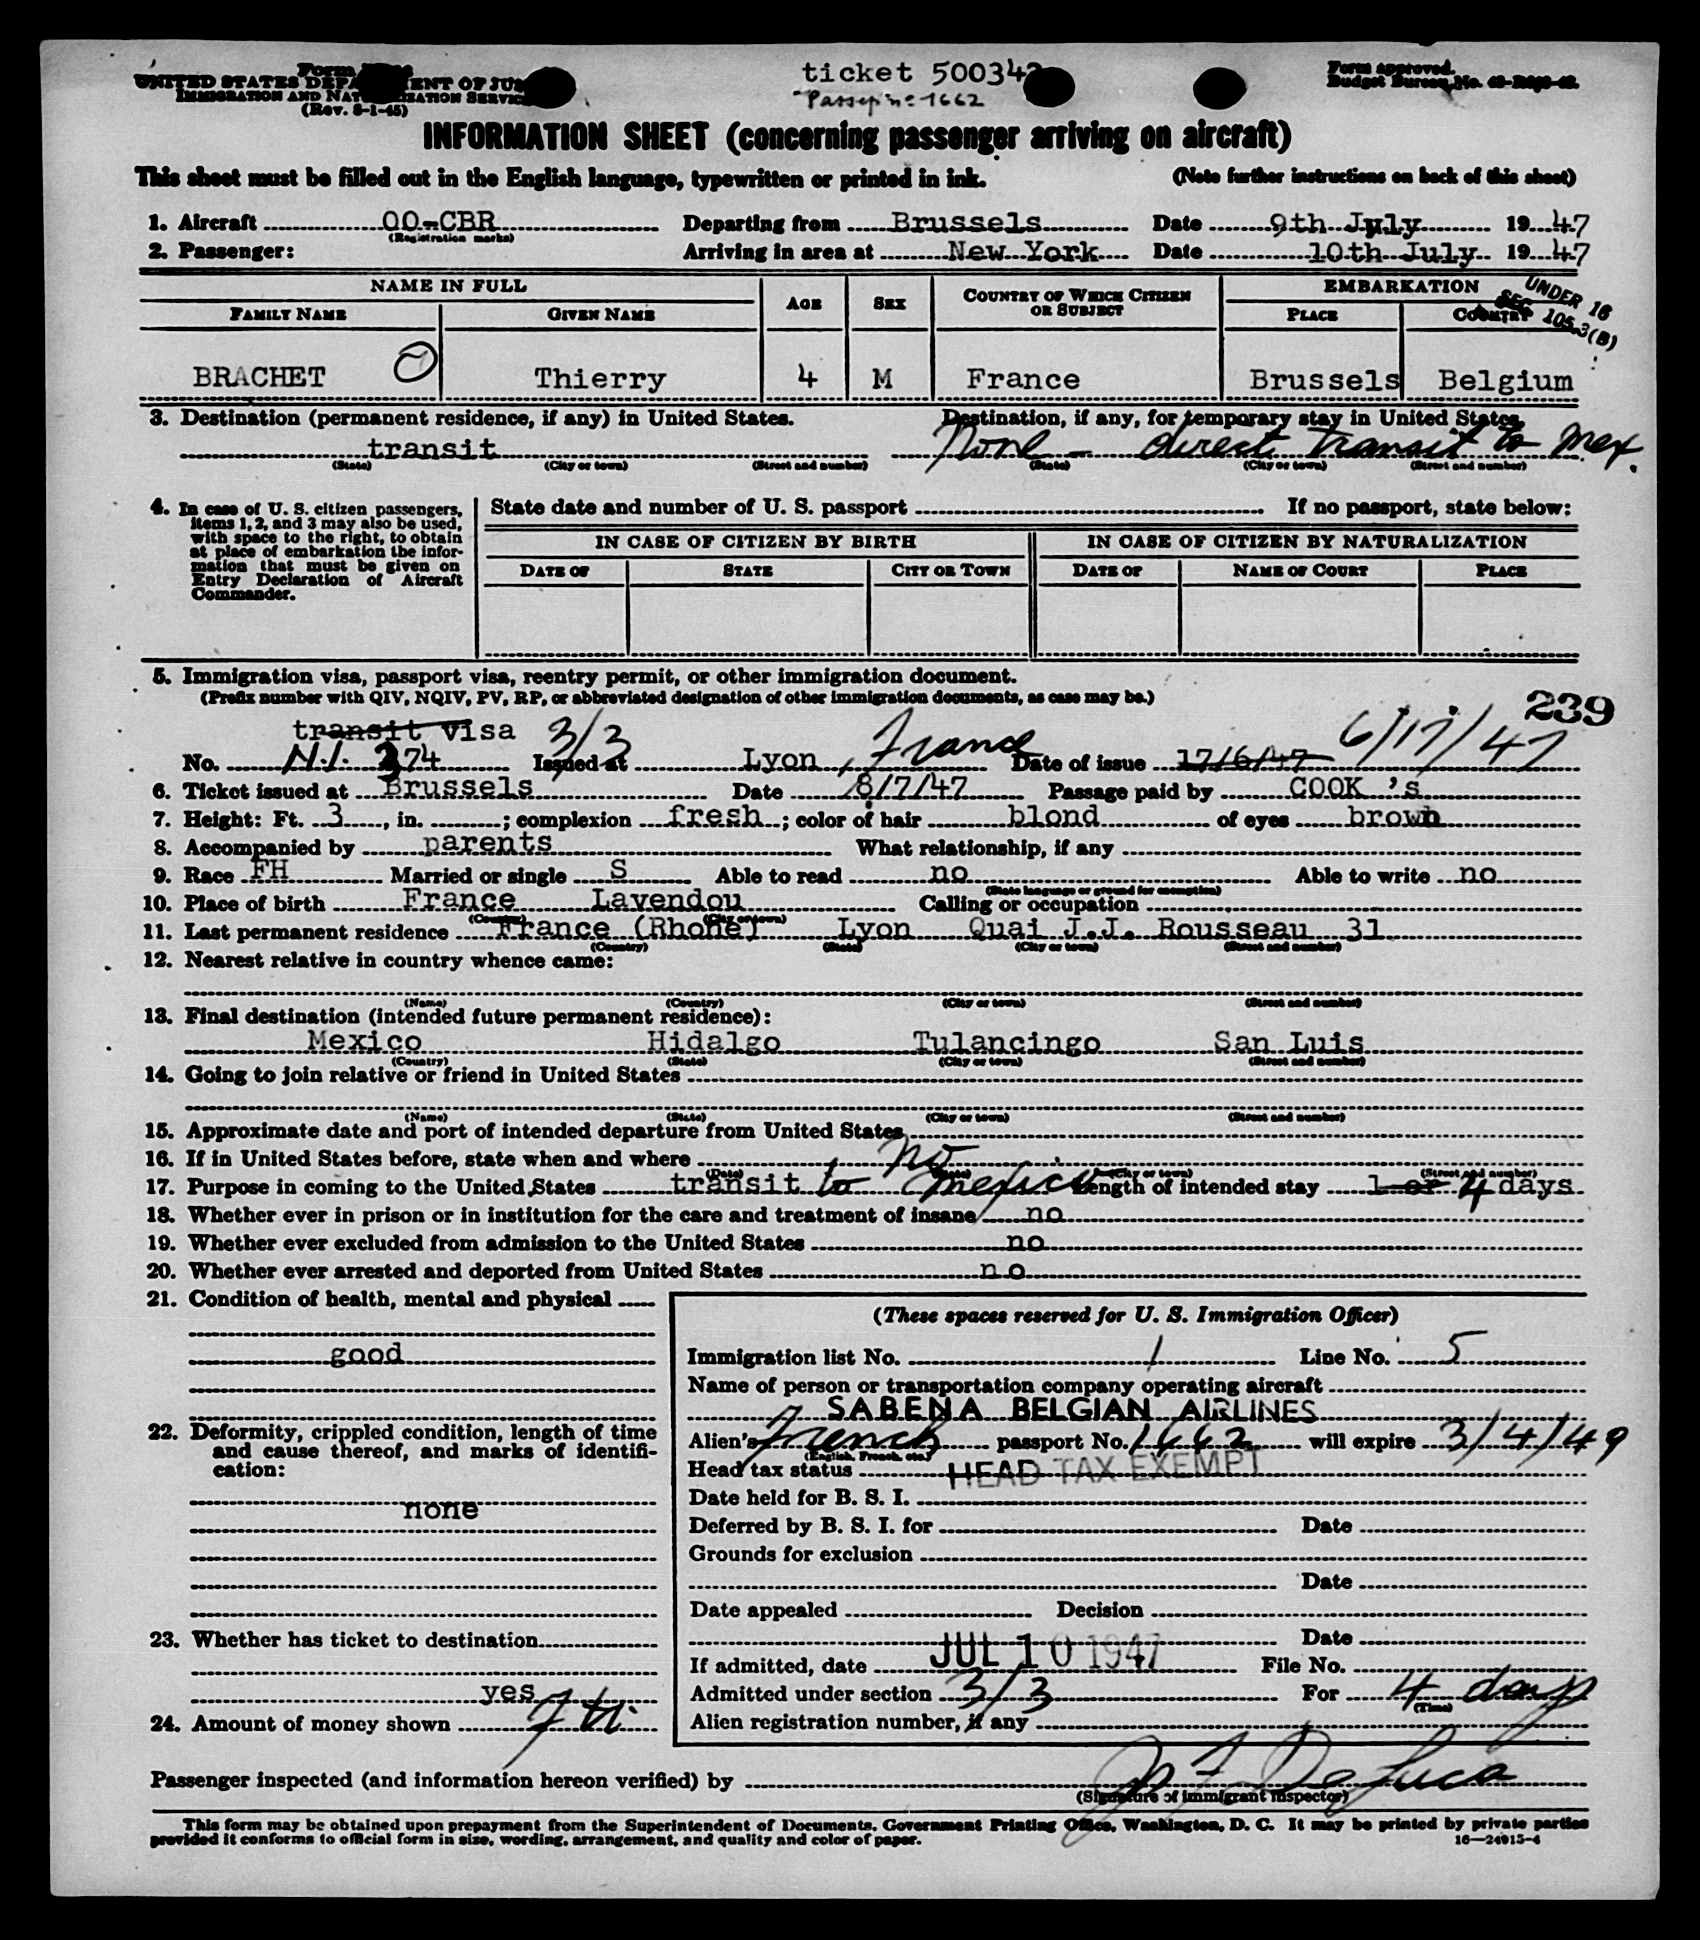 ticket 50034
UNITED STATES DEPA ENT OF JUS
IMMIGRATION AND NAT IZATION SERVICE
(Rev. 8-1-45)
Passep no 1662
Form approved.
Budget Bureau No.
INFORMATION SHEET (concerning passenger arriving on aircraft)
This sheet must be filled out in the English language, typewritten or printed in ink. (Note further instructions on back of this sheet)
1. Aircraft OO-CBR Departing from Brussels Date 9th July 1947
(Registration marks)
2. Passenger: Arriving in area at New York Date 10th July 1947
NAME IN FULL AGE SEX COUNTRY OF WHICH CITIZEN OR SUBJECT EMBARKATION
UNDER 16
SEC 105.3(B)
FAMILY NAME GIVEN NAME PLACE COUNTRY
BRACHET Thierry 4 M France Brussels Belgium
3. Destination (permanent residence, if any) in United States. Destination, if any, for temporary stay in United States.
transit None - direct transit to Mex.
(State) (City or town) (Street and number) (State) (City or town) (Street and number)
4. In case of U. S. citizen passengers, items 1, 2, and 3 may also be used, with space to the right, to obtain at place of embarkation the information that must be given on Entry Declaration of Aircraft Commander.
State date and number of U. S. passport If no passport, state below:
IN CASE OF CITIZEN BY BIRTH IN CASE OF CITIZEN BY NATURALIZATION
DATE OF STATE CITY OR TOWN DATE OF NAME OF COURT PLACE
5. Immigration visa, passport visa, reentry permit, or other immigration document.
(Prefix number with QIV, NQIV, PV, RP, or abbreviated designation of other immigration documents, as case may be.)
239
transit visa 3/3
No. N.I. 374 Issued at Lyon, France Date of issue 17/6/47 6/17/47
6. Ticket issued at Brussels Date 8/7/47 Passage paid by COOK 's
7. Height: Ft. 3, in. ; complexion fresh ; color of hair blond of eyes brown
8. Accompanied by parents What relationship, if any
9. Race FH Married or single S Able to read no Able to write no
(State language or ground for exemption)
10. Place of birth France Lavendou Calling or occupation
(Country) (City or town)
11. Last permanent residence France (Rhone) Lyon Quai J.J. Rousseau 31
(Country) (State) (City or town) (Street and number)
12. Nearest relative in country whence came:
(Name) (Country) (City or town) (Street and number)
13. Final destination (intended future permanent residence):
Mexico Hidalgo Tulancingo San Luis
(Country) (State) (City or town) (Street and number)
14. Going to join relative or friend in United States
(Name) (State) (City or town) (Street and number)
15. Approximate date and port of intended departure from United States
16. If in United States before, state when and where no
(Date) (State) (City or town) (Street and number)
17. Purpose in coming to the United States transit to Mexico Length of intended stay 1 or 4 days
18. Whether ever in prison or in institution for the care and treatment of insane no
19. Whether ever excluded from admission to the United States no
20. Whether ever arrested and deported from United States no
21. Condition of health, mental and physical
good
22. Deformity, crippled condition, length of time and cause thereof, and marks of identification:
none
23. Whether has ticket to destination
yes
24. Amount of money shown
(These spaces reserved for U. S. Immigration Officer)
Immigration list No. 1 Line No. 5
Name of person or transportation company operating aircraft
SABENA BELGIAN AIRLINES
Alien's French passport No. 1662 will expire 3/4/49
(English, French, etc.)
Head tax status HEAD TAX EXEMPT
Date held for B. S. I.
Deferred by B. S. I. for Date
Grounds for exclusion
Date
Date appealed Decision
Date
If admitted, date JUL 10 1947 File No.
Admitted under section 3/3 For 4 days
(Time)
Alien registration number, if any
Passenger inspected (and information hereon verified) by J F DeLuca
(Signature of immigrant inspector)
This form may be obtained upon prepayment from the Superintendent of Documents, Government Printing Office, Washington, D. C. It may be printed by private parties
provided it conforms to official form in size, wording, arrangement, and quality and color of paper. 16—24915-4